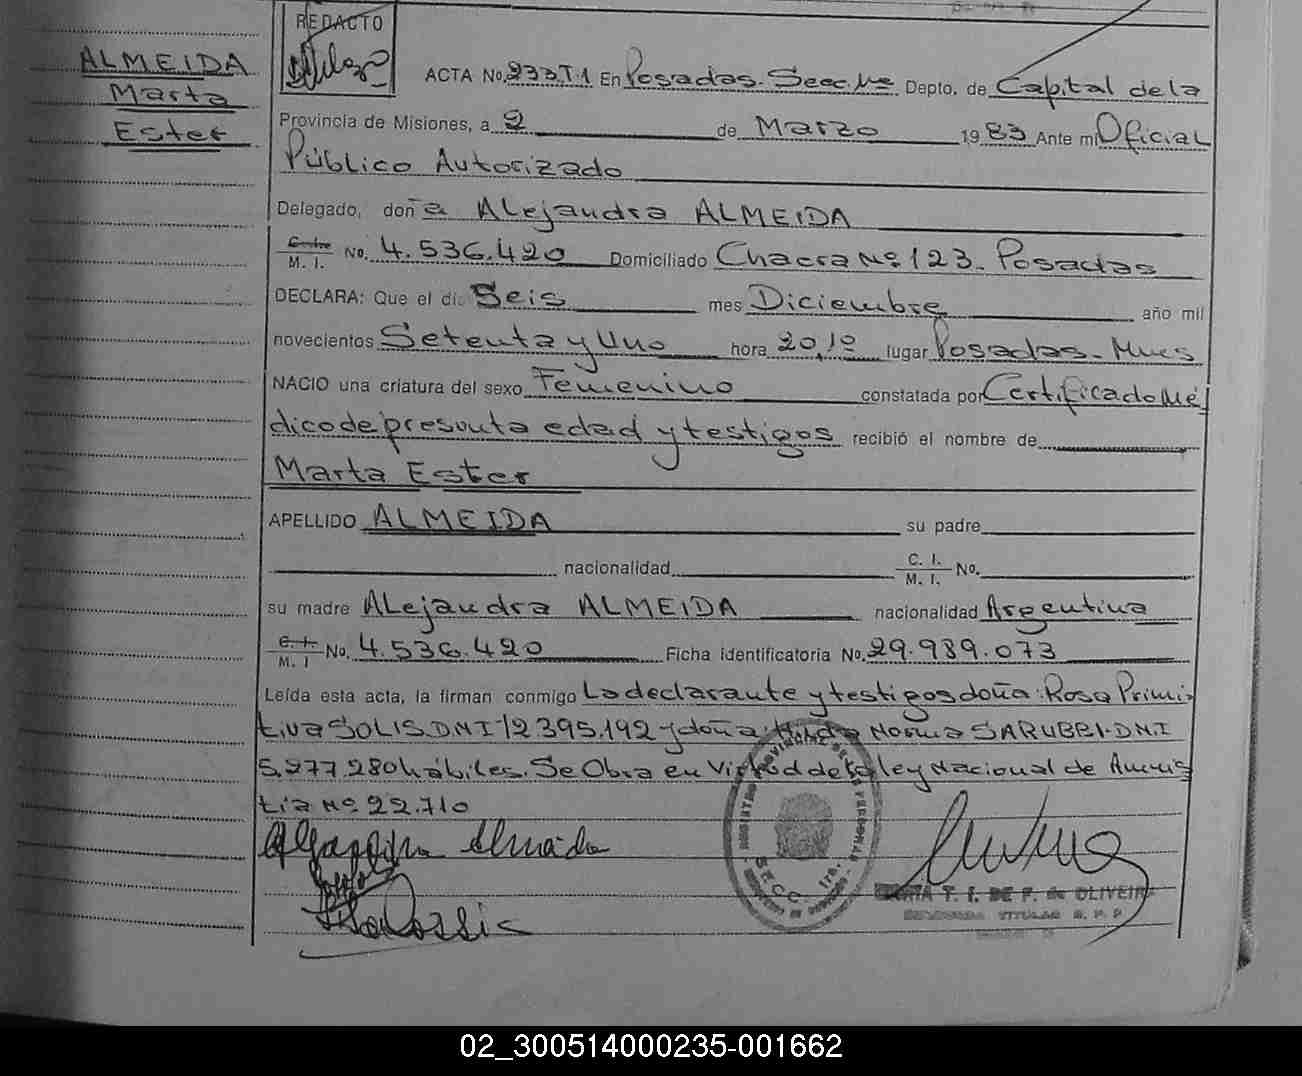 REDACTO
ALMEIDA
Marta
Ester
ACTA No. 233.T.1 En Posadas. Secc. 1ra Depto. de Capital de la
Provincia de Misiones, a 2 de Marzo 1983 Ante mi Oficial
Público Autorizado
Delegado, doña Alejandra ALMEIDA
C. I. M. I. No. 4.536.420 Domiciliado Chacra Nº 123. Posadas
DECLARA: Que el día Seis mes Diciembre año mil
novecientos Setenta y Uno hora 20,10 lugar Posadas - Mnes
NACIO una criatura del sexo Femenino constatada por Certificado Mé
dico de presunta edad y testigos recibió el nombre de
Marta Ester
APELLIDO ALMEIDA su padre
nacionalidad C. I. M. I. No.
su madre Alejandra ALMEIDA nacionalidad Argentina
C. I. M. I No. 4.536.420 Ficha identificatoria No. 29.989.073
Leída esta acta, la firman conmigo La declarante y testigos doña: Rosa Primi
tiva SOLIS. D.N.I 12 395.192 y doña: Norma SARUBBI - DNI
5.277 280 hábiles. Se Obra en Virtud de la ley Nacional de Amnis
tía Nº 22.710
SECC. 1ra.
MARIA T. I. DE F. de OLIVEIRA
DELEGADA TITULAR R. P. P.
02_300514000235-001662